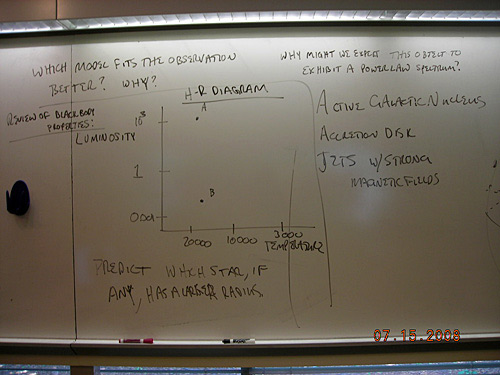 WHICH MODEL FITS THE OBSERVATION
BETTER? WHY?
REVIEW OF BLACKBODY
PROPERTIES:
H-R DIAGRAM
LUMINOSITY
10³
1
0.001
A
B
20000 10000 3000
TEMPERATURE
PREDICT WHICH STAR, IF
ANY, HAS A LARGER RADIUS.
WHY MIGHT WE EXPECT THIS OBJECT TO
EXHIBIT A POWER LAW SPECTRUM?
ACTIVE GALACTIC NUCLEUS
ACCRETION DISK
JETS W/ STRONG
MAGNETIC FIELDS
07.15.2008